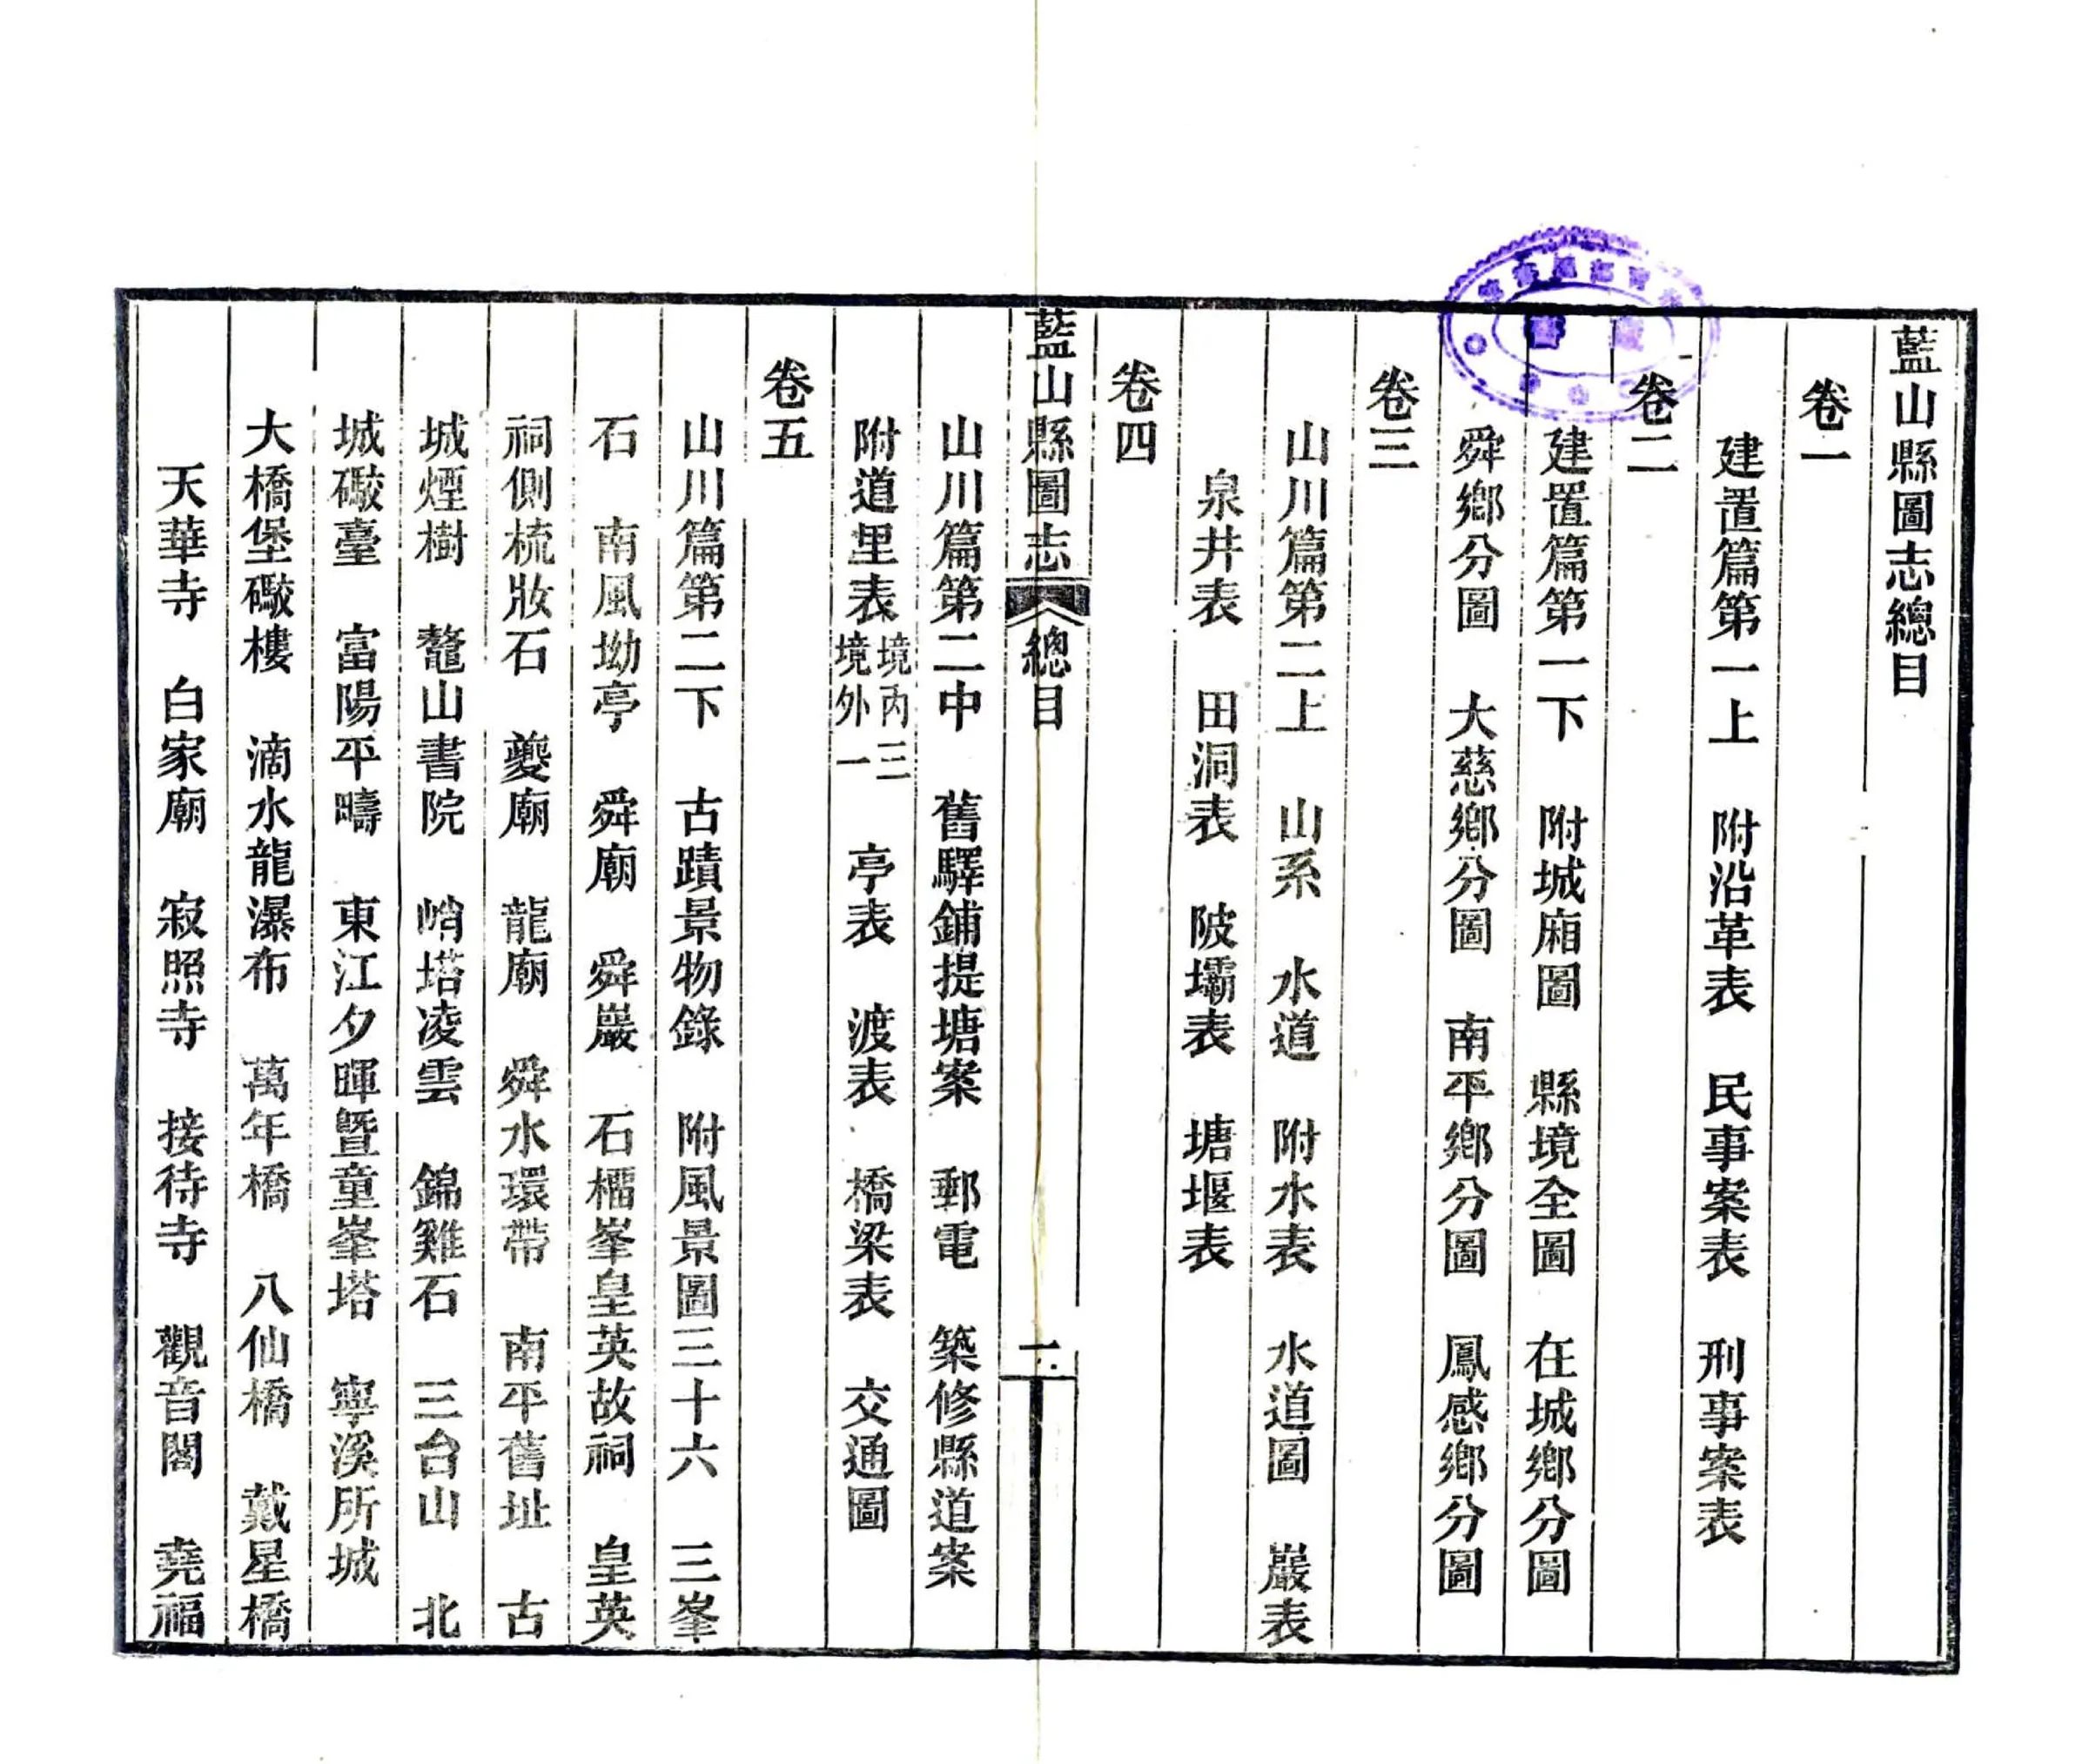 藍山縣圖志總目
卷一
建置篇第一上　附沿革表　民事案表　刑事案表
卷二
建置篇第一下　附城廂圖　縣境全圖　在城鄉分圖
舜鄉分圖　大慈鄉分圖　南平鄉分圖　鳳感鄉分圖
卷三
山川篇第二上　山系　水道　附水表　水道圖　巖表
泉井表　田洞表　陂壩表　塘堰表
卷四
藍山縣圖志　總目　一
山川篇第二中　舊驛鋪提塘案　郵電　築修縣道案
附道里表境內三境外一　亭表　渡表　橋梁表　交通圖
卷五
山川篇第二下　古蹟景物錄　附風景圖三十六　三峯
石　南風坳亭　舜廟　舜巖　石橊峯皇英故祠　皇英
祠側梳妝石　夔廟　龍廟　舜水環帶　南平舊址　古
城煙樹　鼇山書院　峭塔凌雲　錦雞石　三台山　北
城礮臺　富陽平疇　東江夕暉暨童峯塔　寧溪所城
大橋堡礮樓　滴水龍瀑布　萬年橋　八仙橋　戴星橋
天華寺　白家廟　寂照寺　接待寺　觀音閣　堯福